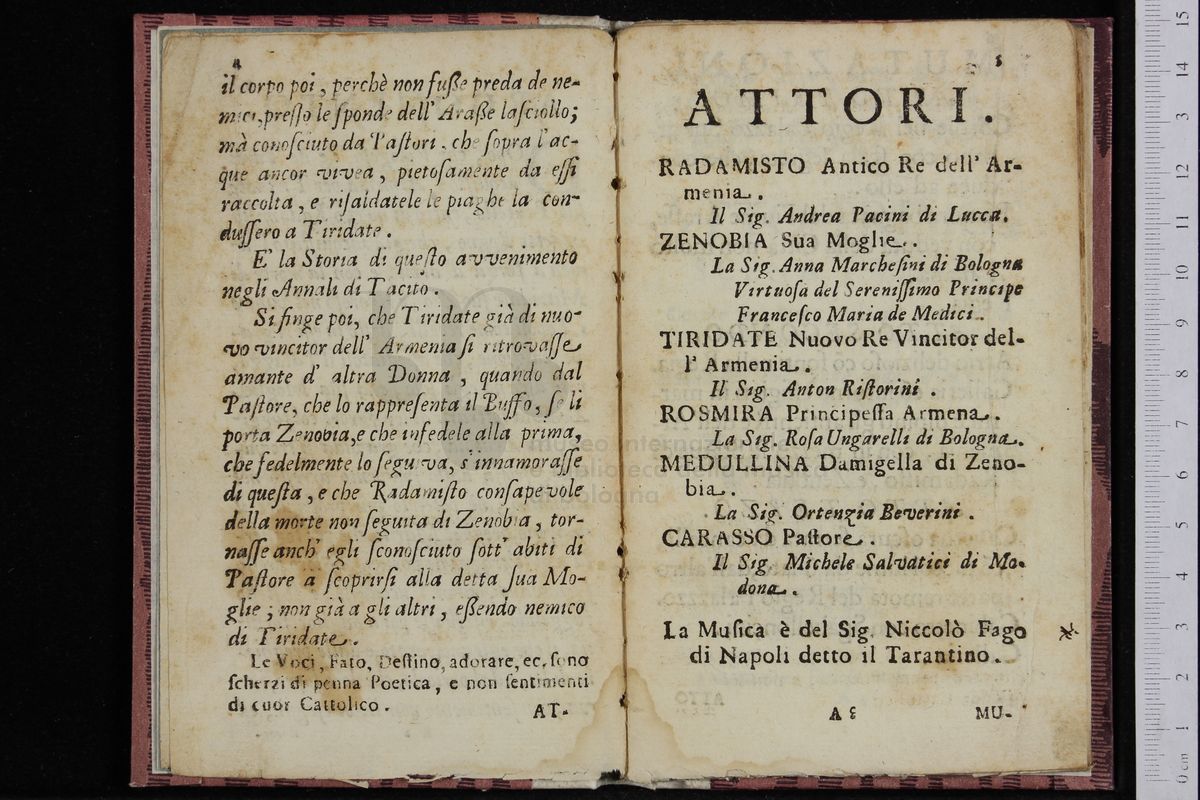 4
il corpo poi, perchè non fuſſe preda de ne-
mici, preſſo le ſponde dell' Araſſe laſciollo;
mà conoſciuto da Paſtori, che ſopra l'ac-
que ancor vivea, pietoſamente da eſſi
raccolta, e riſaldatele le piaghe la con-
duſſero a Tiridate.
E' la Storia di queſto avvenimento
negli Annali di Tacito.
Si finge poi, che Tiridate già di nuo-
vo vincitor dell' Armenia ſi ritrovaſſe
amante d' altra Donna, quando dal
Paſtore, che lo rappreſenta il Buffo, ſe li
porta Zenobia, e che infedele alla prima,
che fedelmente lo ſeguiva, s'innamoraſſe
di queſta, e che Radamiſto conſapevole
della morte non ſeguita di Zenobia, tor-
naſſe anch' egli ſconoſciuto ſott' abiti di
Paſtore a ſcoprirſi alla detta ſua Mo-
glie; non già a gli altri, eſſendo nemico
di Tiridate.
Le Voci, Fato, Deſtino, adorare, ec. ſono
ſcherzi di penna Poetica, e non ſentimenti
di cuor Cattolico.
AT-
5
ATTORI.
RADAMISTO Antico Re dell' Ar-
menia.
Il Sig. Andrea Pacini di Lucca.
ZENOBIA Sua Moglie.
La Sig. Anna Marcheſini di Bologna
Virtuoſa del Sereniſſimo Principe
Franceſco Maria de Medici.
TIRIDATE Nuovo Re Vincitor del-
l' Armenia.
Il Sig. Anton Riſtorini.
ROSMIRA Principeſſa Armena.
La Sig. Roſa Ungarelli di Bologna.
MEDULLINA Damigella di Zeno-
bia.
La Sig. Ortenzia Beverini.
CARASSO Paſtore.
Il Sig. Michele Salvatici di Mo-
dona.
La Muſica è del Sig. Niccolò Fago
di Napoli detto il Tarantino.
MU-